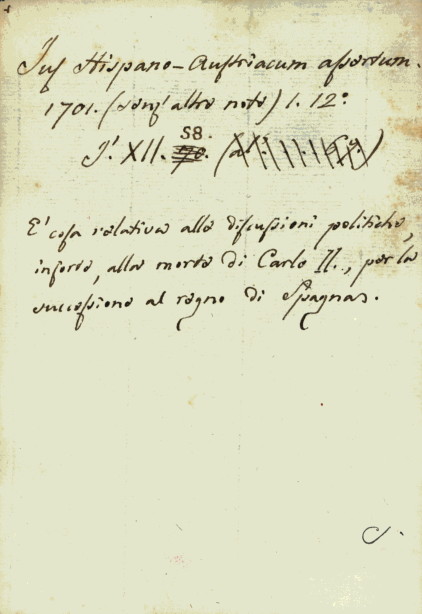 Jus Hispano-Austriacum assertum.
1701. (senz' altre note) 1. 12.º
S8.
J.' XII. (a
E' cosa relativa alle discussioni politiche,
insorte, alla morte di Carlo II., per la
successione al regno di Spagna.
C.